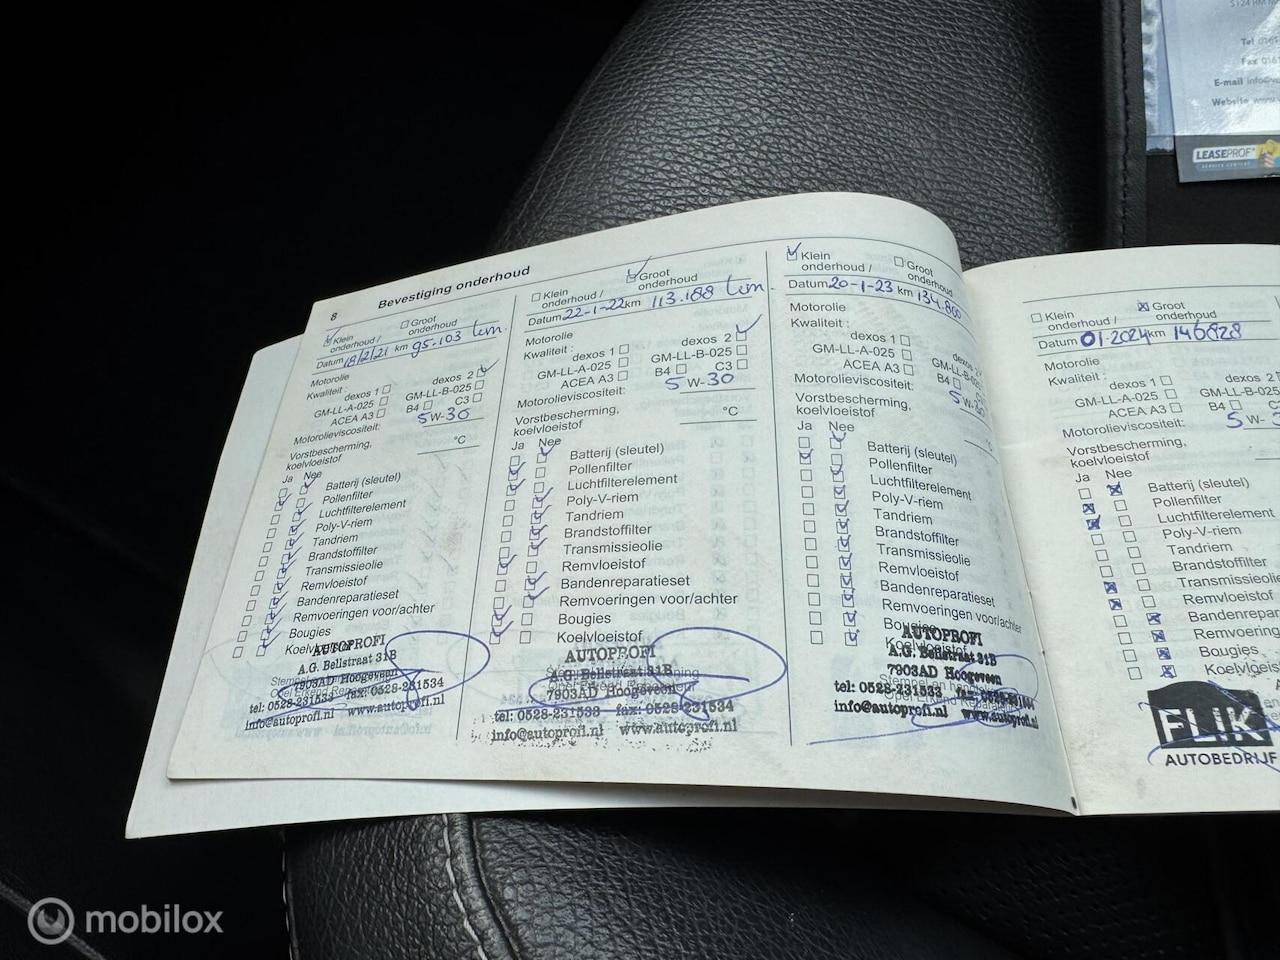 S124 RM
Tel 0161
Fax 0161
E-mail info@v
Website www.
LEASEPROF
SERVICE CENTERS
8
Bevestiging onderhoud
Klein onderhoud /
Groot onderhoud
Datum 18/2/21 km 95.103 km.
Motorolie
Kwaliteit :
dexos 1
dexos 2
GM-LL-A-025
GM-LL-B-025
ACEA A3
B4
C3
Motorolieviscositeit:
5 W-30
Vorstbescherming,
koelvloeistof
°C
Ja Nee
Batterij (sleutel)
Pollenfilter
Luchtfilterelement
Poly-V-riem
Tandriem
Brandstoffilter
Transmissieolie
Remvloeistof
Bandenreparatieset
Remvoeringen voor/achter
Bougies
AUTOPROFI
A.G. Bellstraat 31B
7903AD Hoogeveen
tel: 0528-231533 fax: 0528-231534
info@autoprofi.nl www.autoprofi.nl
Klein onderhoud /
Groot onderhoud
Datum 22-1-22 km 113.188 km.
Motorolie
Kwaliteit :
dexos 1
dexos 2
GM-LL-A-025
GM-LL-B-025
ACEA A3
B4
C3
Motorolieviscositeit:
5 W-30
Vorstbescherming,
koelvloeistof
°C
Ja Nee
Batterij (sleutel)
Pollenfilter
Luchtfilterelement
Poly-V-riem
Tandriem
Brandstoffilter
Transmissieolie
Remvloeistof
Bandenreparatieset
Remvoeringen voor/achter
Bougies
Koelvloeistof
AUTOPROFI
A.G. Bellstraat 31B
7903AD Hoogeveen
tel: 0528-231533 fax: 0528-231534
info@autoprofi.nl www.autoprofi.nl
Klein onderhoud /
Groot onderhoud
Datum 20-1-23 km 134.800
Motorolie
Kwaliteit :
dexos 1
dexos
GM-LL-A-025
GM-LL-B-02
ACEA A3
B4
Motorolieviscositeit:
5 W-30
Vorstbescherming,
koelvloeistof
°C
Ja Nee
Batterij (sleutel)
Pollenfilter
Luchtfilterelement
Poly-V-riem
Tandriem
Brandstoffilter
Transmissieolie
Remvloeistof
Bandenreparatieset
Remvoeringen voor/achter
Bougies
Koelvloeistof
AUTOPROFI
A.G. Bellstraat 31B
7903AD Hoogeveen
tel: 0528-231533
info@autoprofi.nl www.autoprofi.nl
Klein onderhoud /
Groot onderhoud
Datum 01-2024 km 146828
Motorolie
Kwaliteit :
dexos 1
dexos 2
GM-LL-A-025
GM-LL-B-0
ACEA A3
B4
Motorolieviscositeit:
5 W-3
Vorstbescherming,
koelvloeistof
Ja Nee
Batterij (sleutel)
Pollenfilter
Luchtfilterelement
Poly-V-riem
Tandriem
Brandstoffilter
Transmissieolie
Remvloeistof
Bandenrepara
Remvoering
Bougies
Koelvloeist
FLIK
AUTOBEDRIJF
mobilox